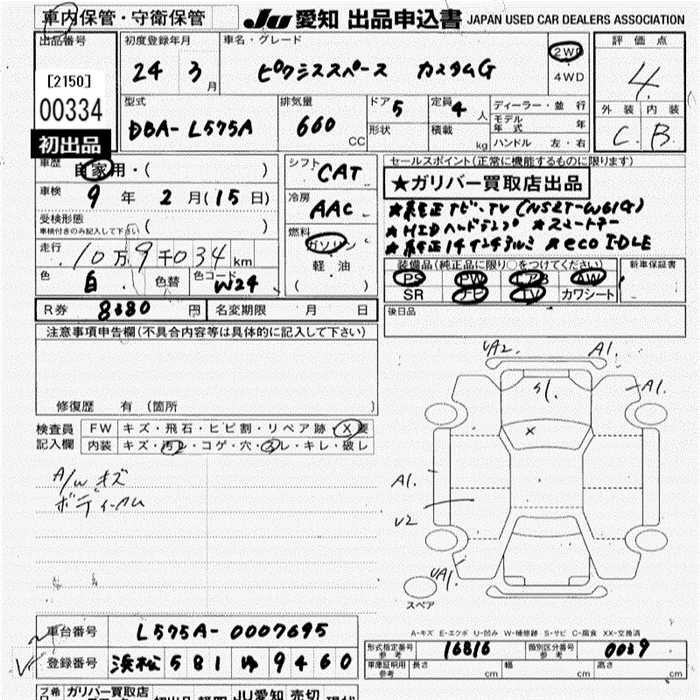 車内保管・守衛保管
JU 愛知 出品申込書 JAPAN USED CAR DEALERS ASSOCIATION
出品番号
[2150]
00334
初出品
初度登録年月
24年3月
車名・グレード
ピクシススペース カスタムG
2WD
4WD
評価点
4
外装 内装
C. B.
型式
DBA-L575A
排気量
660 CC
ドア 5
形状
定員 4 人
積載 kg
ディーラー・並行
モデル年式 年
ハンドル 左・右
車歴 自家用・( )
車検 9年2月(15日)
受検形態
車検付きのみ記入して下さい ( )
走行 10万9千034km
色 白 色替 色コード W24
シフト CAT
冷房 AAC
燃料
ガソリン
軽油
( )
セールスポイント(正常に機能するものに限ります)
★ガリバー買取店出品
★純正ナビ・TV (NSZT-W61G)
★HIDヘッドランプ ★スマートキー
★純正14インチアルミ ★eco IDLE
装備品(純正品に限り○をつけてください)
PS PW エアB AW
SR ナビ TV カワシート
新車保証書
後日品
R券 8380円 名変期限 月 日
注意事項申告欄(不具合内容等は具体的に記入して下さい)
修復歴 有 (箇所 )
検査員記入欄
FW キズ・飛石・ヒビ割・リペア跡・X要
内装 キズ・汚れ・コゲ・穴・スレ・キレ・破レ
A/W キズ
ボディーハム
UA2. A1.
S1. A1.
X
A1.
U2
UA1.
スペア
A-キズ E-エクボ U-凹み W-補修跡 S-サビ C-腐食 XX-交換済
車台番号 L575A-0007695
登録番号 浜松 581 ゆ 9460
型式指定番号 参考 16816
類別区分番号 参考 0039
車庫証明用 参考 長さ cm 幅 cm 高さ cm
ガリバー買取店
JU愛知 売切